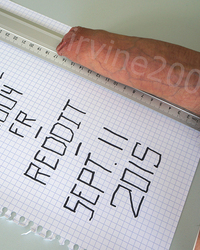 irvine200
004
FR
–
REDDIT
–
SEPT. 11
2015